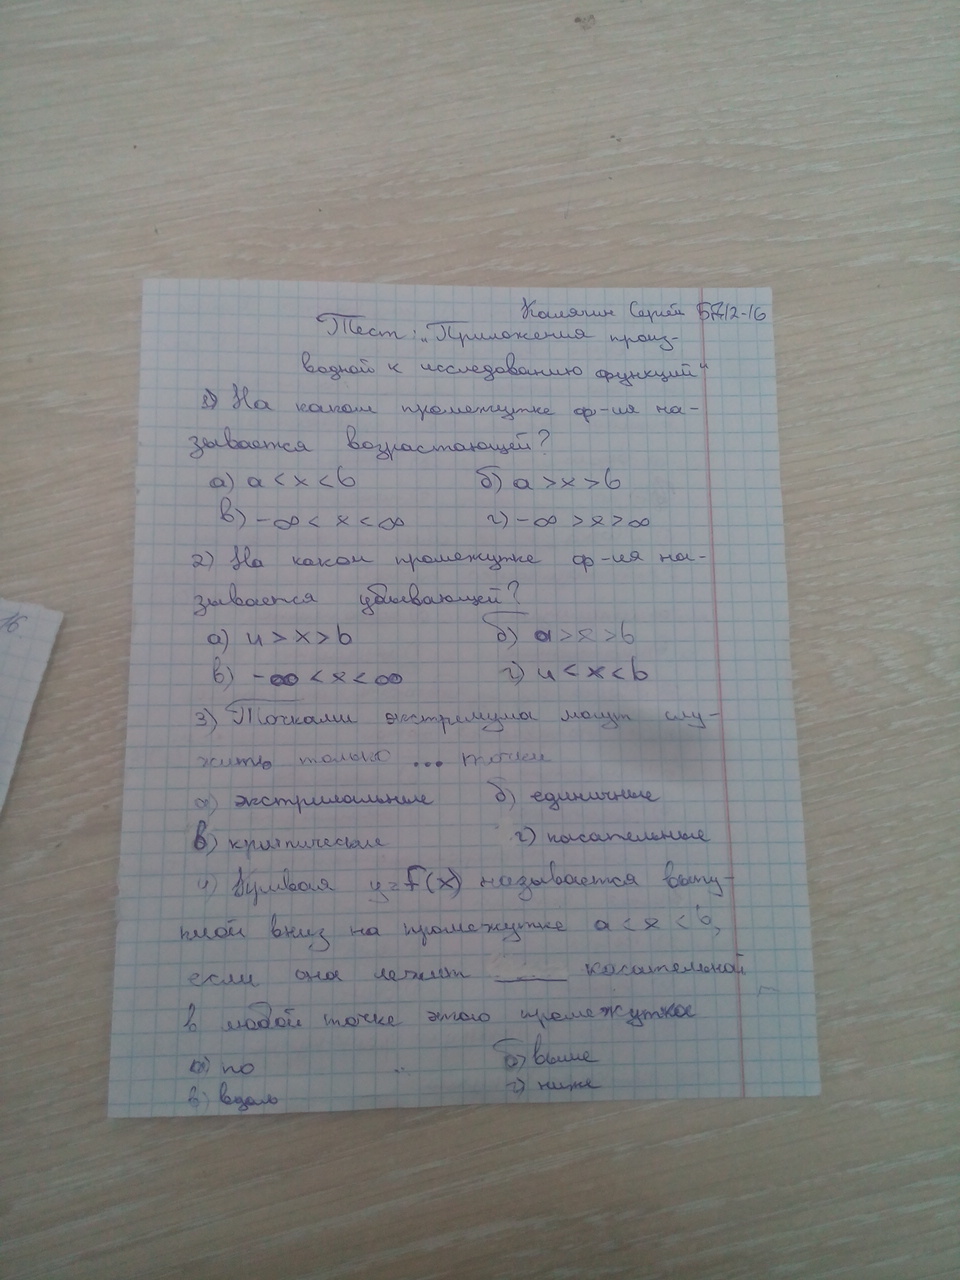 Калягин Сергей БД12-16
Тест: „Приложения произ-
водной к исследованию функций"
1) На каком промежутке ф-ия на-
зывается возрастающей?
а) a < x < b б) a > x > b
в) -∞ < x < ∞ г) -∞ > x > ∞
2) На каком промежутке ф-ия на-
зывается убывающей?
а) u > x > b б) a > x > b
в) -∞ < x < ∞ г) u < x < b
3) Точками экстремума могут слу-
жить только ... точки
а) экстримальные б) единичные
в) критические г) касательные
4) Кривая y = f(x) называется выпу-
клой вниз на промежутке a < x < b,
если она лежит ____ касательной
в любой точке этого промежутка
а) по б) выше
в) вдоль г) ниже
16